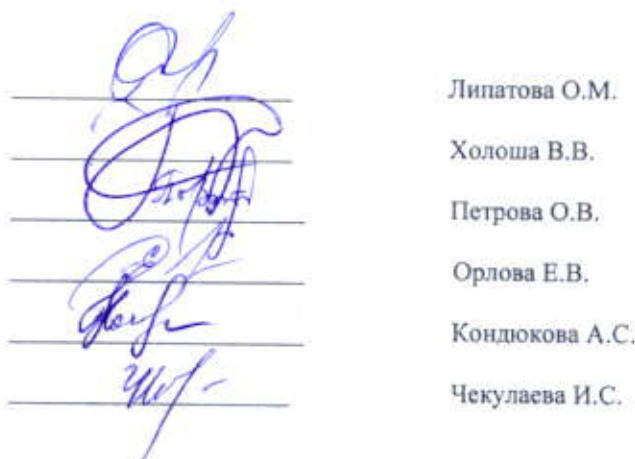 Липатова О.М.
Холоша В.В.
Петрова О.В.
Орлова Е.В.
Кондюкова А.С.
Чекулаева И.С.